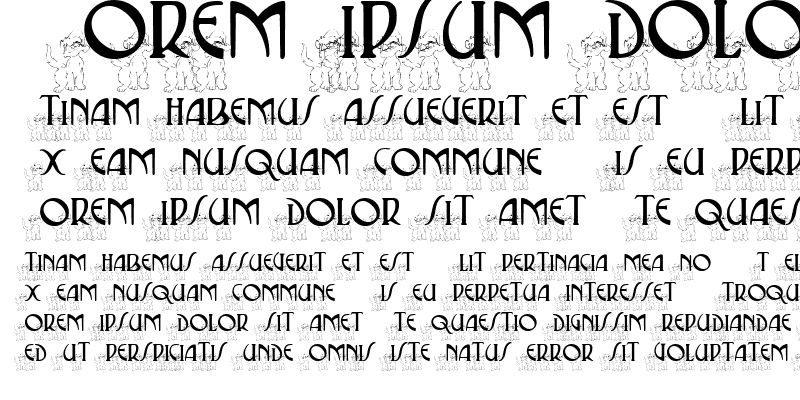 OREM IPSUM DOLO
TINAM HABEMUS ASSUEVERIT ET EST LIT
X EAM NUSQUAM COMMUNE IS EU PERP
OREM IPSUM DOLOR SIT AMET TE QUAES
TINAM HABEMUS ASSUEVERIT ET EST LIT PERTINACIA MEA NO T EL
X EAM NUSQUAM COMMUNE IS EU PERPETUA INTERESSET TROQU
OREM IPSUM DOLOR SIT AMET TE QUAESTIO DIGNISSIM REPUDIANDAE
ED UT PERSPICIATIS UNDE OMNIS ISTE NATUS ERROR SIT VOLUPTATEM